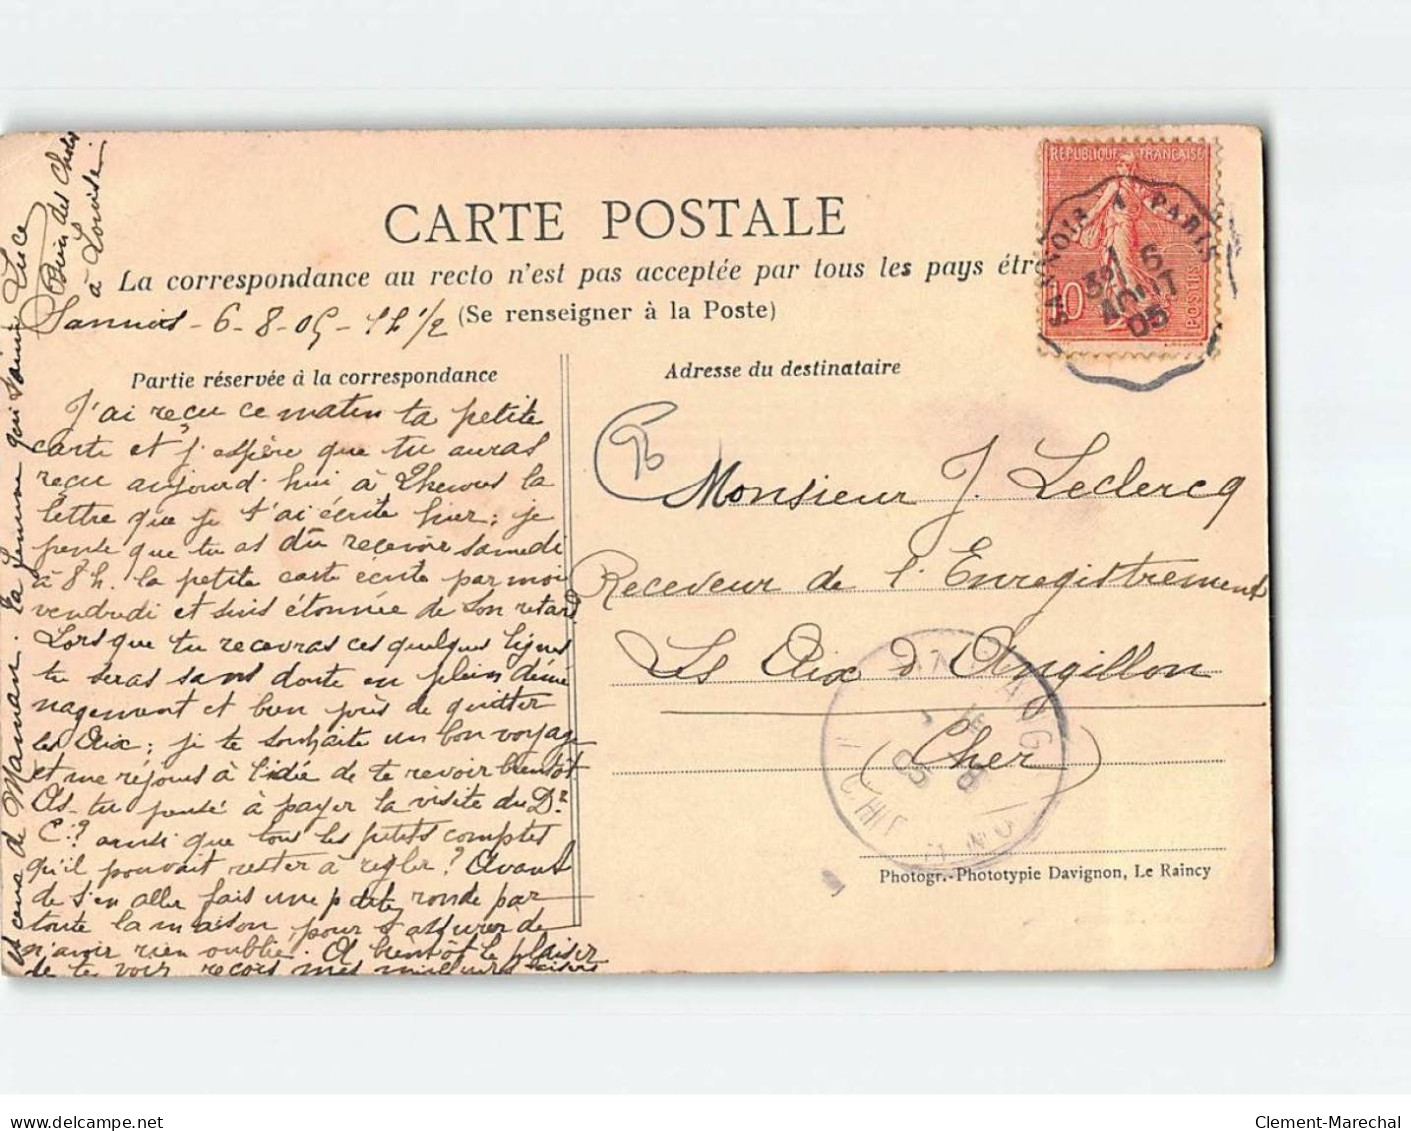 CARTE POSTALE
La correspondance au recto n'est pas acceptée par tous les pays étr
(Se renseigner à la Poste)
Partie réservée à la correspondance
Adresse du destinataire
RÉPUBLIQUE FRANÇAISE
10
POSTES
SANNOIS A PARIS
3e 6
AOUT
05
Sannois - 6-8-05 - 11h 1/2
J'ai reçu ce matin ta petite
carte et j'espère que tu auras
reçu aujourd'hui à la
lettre que je t'ai écrite hier; je
pense que tu as dû recevoir samedi
à 8h. la petite carte écrite par moi
vendredi et suis étonnée de son retard
Lorsque tu recevras ces quelques lignes
tu seras sans doute en plein démé
nagement et bien près de quitter
les Aix; je te souhaite un bon voyage
et me réjouis à l'idée de te revoir bientôt
As-tu pensé à payer la visite du Dr
C.? ainsi que tous les petits comptes
qu'il pouvait rester à régler? Avant
de t'en aller fais une petite ronde par
toute la maison pour t'assurer de
n'avoir rien oublié. A bientôt le plaisir
de te voir reçois mes meilleurs baisers
et ceux de Maman. Ta femme qui t'aime
Luce
Bien des choses
à Louise
Monsieur J. Leclercq
Receveur de l'Enregistrement
Les Aix d'Angillon
(Cher)
Photogr.-Phototypie Davignon, Le Raincy
Clement-Marechal